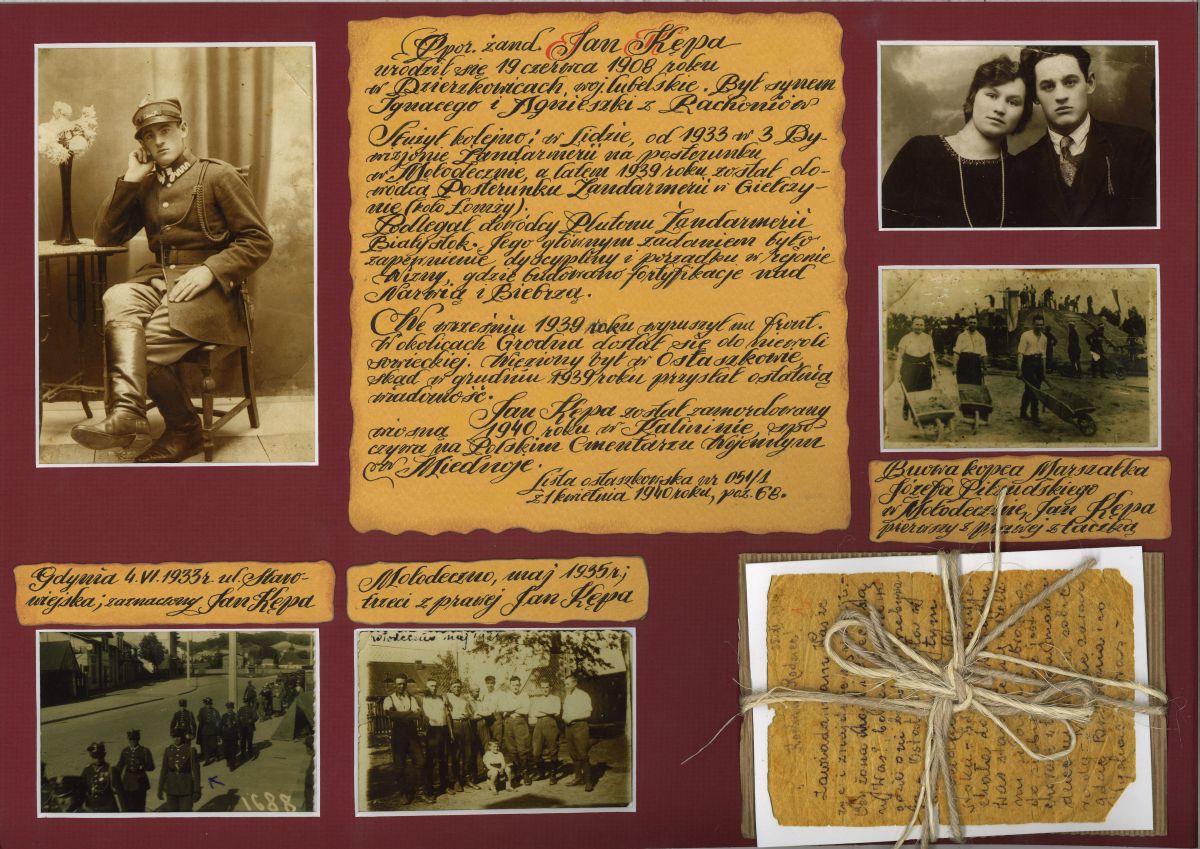 Ppor. żand. Jan Kępa
urodził się 19 czerwca 1908 roku
w Dzierzkowicach, woj. lubelskie. Był synem
Ignacego i Agnieszki z Rachoniów
Służył kolejno: w Lidzie, od 1933 w 3 Dy-
wizjonie Żandarmerii na posterunku
w Mołodecznie, a latem 1939 roku został do-
wódcą Posterunku Żandarmerii w Giełczy-
nie (koło Łomży).
Podlegał dowódcy Plutonu Żandarmerii
Białystok. Jego głównym zadaniem było
zapewnienie dyscypliny i porządku w rejonie
Wizny, gdzie budowano fortyfikacje nad
Narwią i Biebrzą.
We wrześniu 1939 roku wyruszył na front.
W okolicach Grodna dostał się do niewoli
sowieckiej. Więziony był w Ostaszkowie,
skąd w grudniu 1939 roku przysłał ostatnią
wiadomość.
Jan Kępa został zamordowany
wiosną 1940 roku w Kalininie, spo-
czywa na Polskim Cmentarzu Wojennym
w Miednoje.
Lista ostaszkowska nr 051/1
z 1 kwietnia 1940 roku, poz. 68.
Budowa kopca Marszałka
Józefa Piłsudskiego
w Mołodecznie, Jan Kępa
pierwszy z prawej z taczką
Gdynia 4.VI.1933 r. ul. Staro-
wiejska; zaznaczony Jan Kępa
Mołodeczno, maj 1935 r.;
trzeci z prawej Jan Kępa
1688